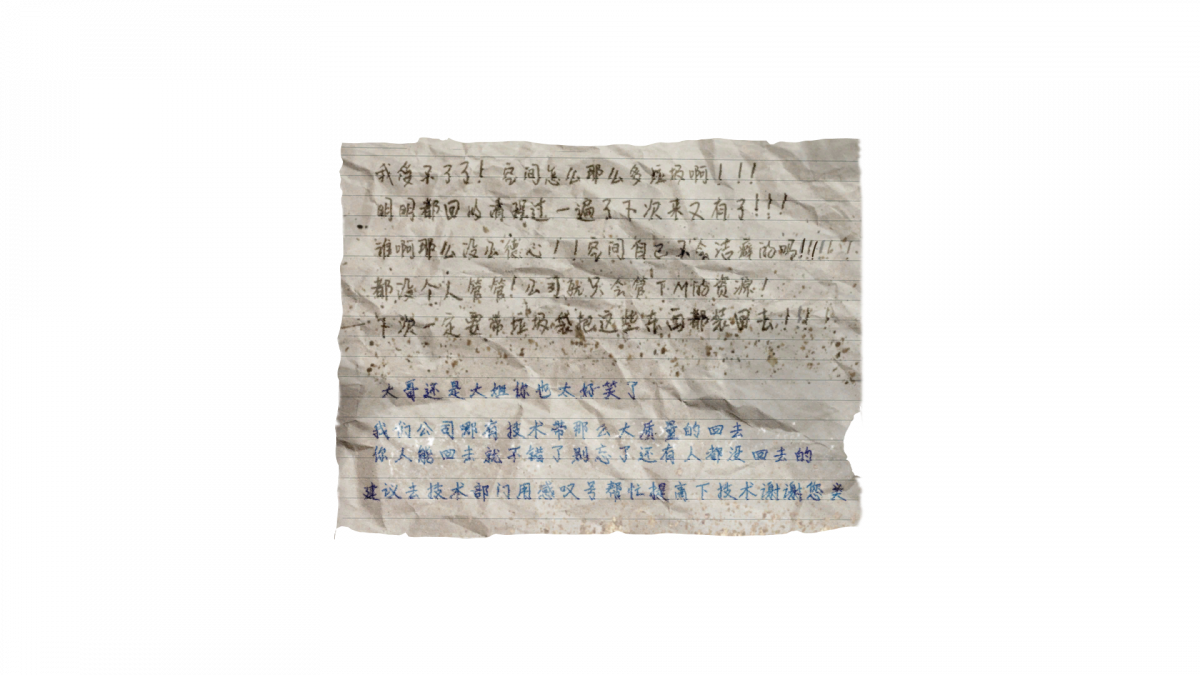 我受不了了！房间怎么那么多垃圾啊！！！
明明都回的清理过一遍了下次来又有了!!!
谁啊那么没公德心！！房间自己不会洁癖的吗!!!!!!
都没个人管管!公司就只会管下M的资源!
下次一定要带垃圾袋把这些东西都装回去!!!!
大哥还是大姐你也太好笑了
我们公司哪有技术带那么大质量的回去
你人能回去就不错了别忘了还有人都没回去的
建议去技术部门用感叹号帮忙提高下技术谢谢您类